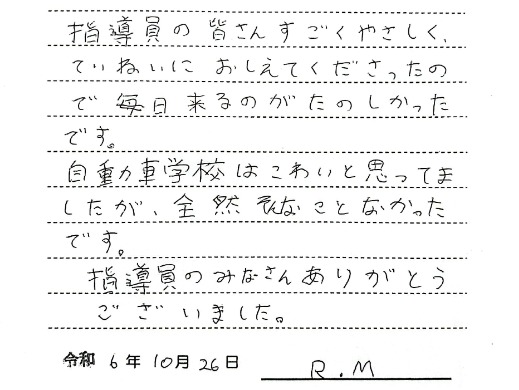 指導員の皆さんすごくやさしく、
ていねいにおしえてくださったの
で毎日来るのがたのしかった
です。
自動車学校はこわいと思ってま
したが、全然そんなことなかった
です。
指導員のみなさんありがとう
ございました。
令和 6年 10月 26日 R.M